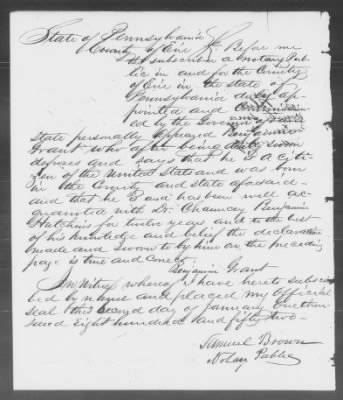 State of Pennsylvania
County of Erie Ss. Before me
the subscriber a notary Pub-
lic in and for the County
of Erie in the state of
Pennsylvania duly ap-
pointed and commission-
ed by the Governor
state personally appeared Benjamin
Grant who after being duly sworn
deposes and says that he is a citi-
zen of the United States and was born
in the County and state aforesaid
and that he is and has been well ac-
quainted with Dr. Chauncey Benjamin
Hutchins for twelve years and to the best
of his knowledge and belief the declaration
made and sworn to by him on the preceding
page is true and correct.
Benjamin Grant
In Witness whereof I have hereto subscri-
bed my name and placed my official
seal this second day of January One thou-
sand Eight hundred and fifty two
Samuel Brown
Notary Public